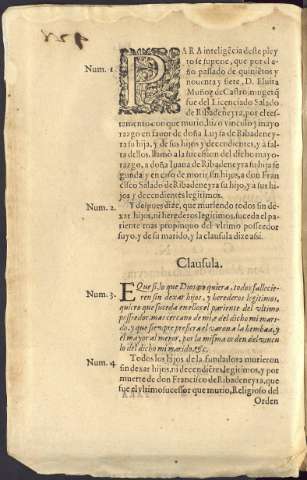 Num. 1.
PARA inteligẽcia deste pley
to se supone, que por el a
ño passado de quiniẽtos y
nouenta y siete, D. Eluira
Muñoz de Castro, muger q̃
fue del Licenciado Salado
de Ribadeneyra, por el tes-
tamento con que murio, hizo vinculo y mayo
razgo en fauor de doña Luysa de Ribadeney
ra su hija, y de sus hijos y decendientes, y a fal
ta dellos, llamò a la sucession del dicho mayo-
razgo, a doña Iuana de Ribadeneyra su hija se
gunda: y en caso de morir sin hijos, a don Fran
cisco Salado de Ribadeneyra su hijo, y a sus hi-
jos y decendientes legitimos.
Num. 2.
Y despues dize, que muriendo todos sin de
xar hijos, ni herederos legitimos, suceda el pa-
riente mas propinquo del vltimo posseedor
suyo, y de su marido, y la clausula dize assi.
Clausula.
Num. 3.
E Que si, lo que Dios no quiera, todos fallecie-
ren sin dexar hijos, y herederos legitimos,
quiero que suceda en ellos el pariente del vltimo
posseedor mas cercano de mi, y del dicho mi mari-
do, y que siempre prefiera el varon a la hembra, y
el mayor al menor, por la misma orden del vincu
lo del dicho mi marido, &c.
Num. 4.
Todos los hijos de la fundadora murieron
sin dexar hijos, ni decendiẽtes legitimos, y por
muerte de don Francisco de Ribadeneyra, que
fue el vltimo sucessor que murio, Religioso del
Orden